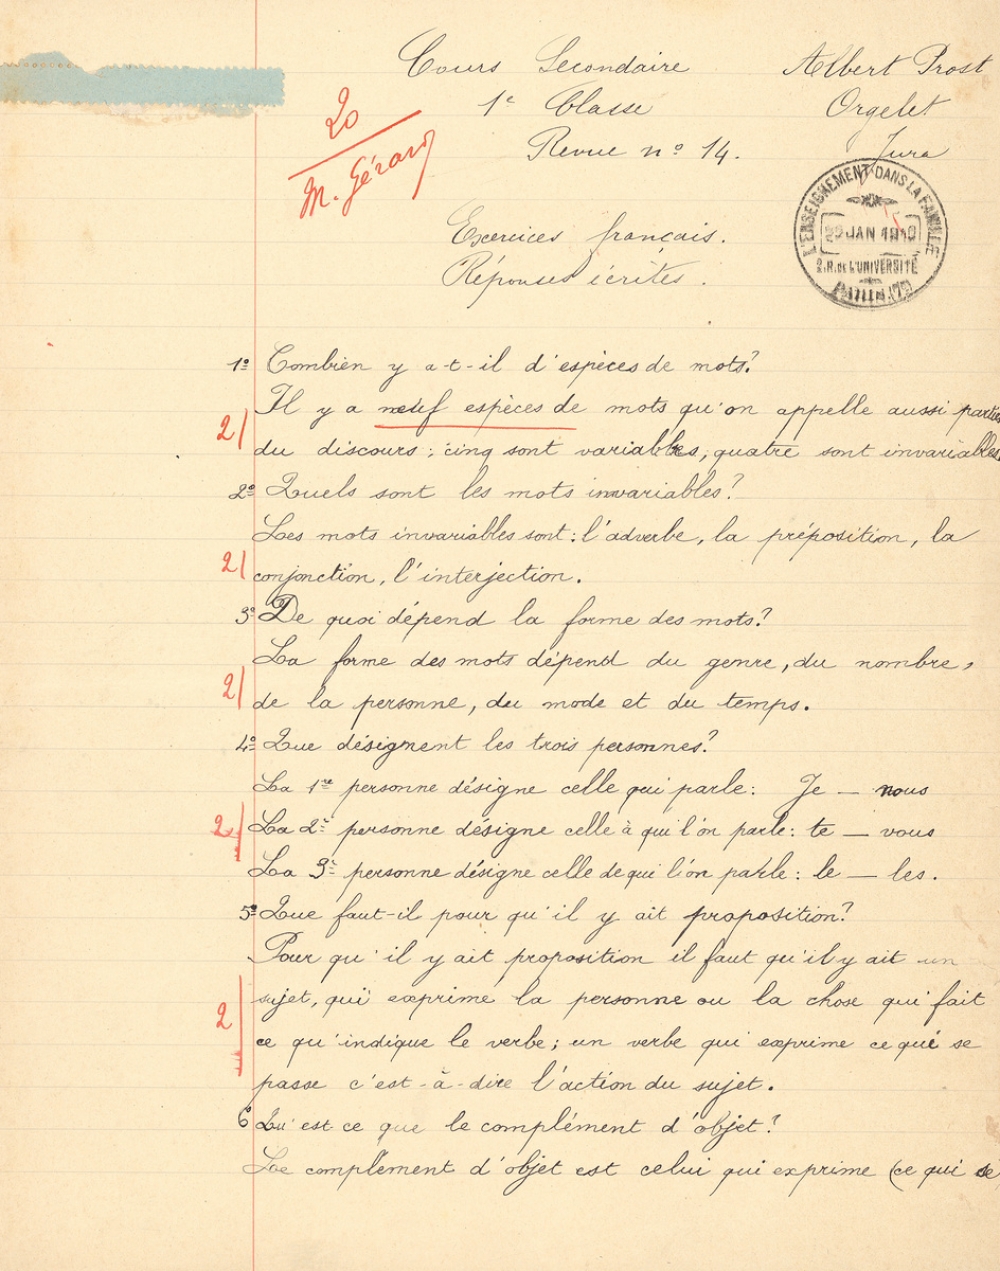 Cours Secondaire
1e Classe
Revue no 14.
Albert Prost
Orgelet
Jura
20
M. Gérard
L'ENSEIGNEMENT DANS LA FAMILLE
JAN
2.R. DE L'UNIVERSITÉ
Exercices français.
Réponses écrites.
1o Combien y a-t-il d'espèces de mots?
Il y a neuf espèces de mots qu'on appelle aussi parties
2
du discours : cinq sont variables, quatre sont invariables.
2o Quels sont les mots invariables?
Les mots invariables sont : l'adverbe, la préposition, la
2
conjonction, l'interjection.
3o De quoi dépend la forme des mots?
La forme des mots dépend du genre, du nombre,
2
de la personne, du mode et du temps.
4o Que désignent les trois personnes?
La 1re personne désigne celle qui parle : Je — nous
2
La 2e personne désigne celle à qui l'on parle : te — vous
La 3e personne désigne celle de qui l'on parle : le — les.
5o Que faut-il pour qu'il y ait proposition?
Pour qu'il y ait proposition il faut qu'il y ait un
sujet, qui exprime la personne ou la chose qui fait
2
ce qu'indique le verbe; un verbe qui exprime ce qui se
passe c'est-à-dire l'action du sujet.
6o Qu'est ce que le complément d'objet?
Le complément d'objet est celui qui exprime (ce qui se